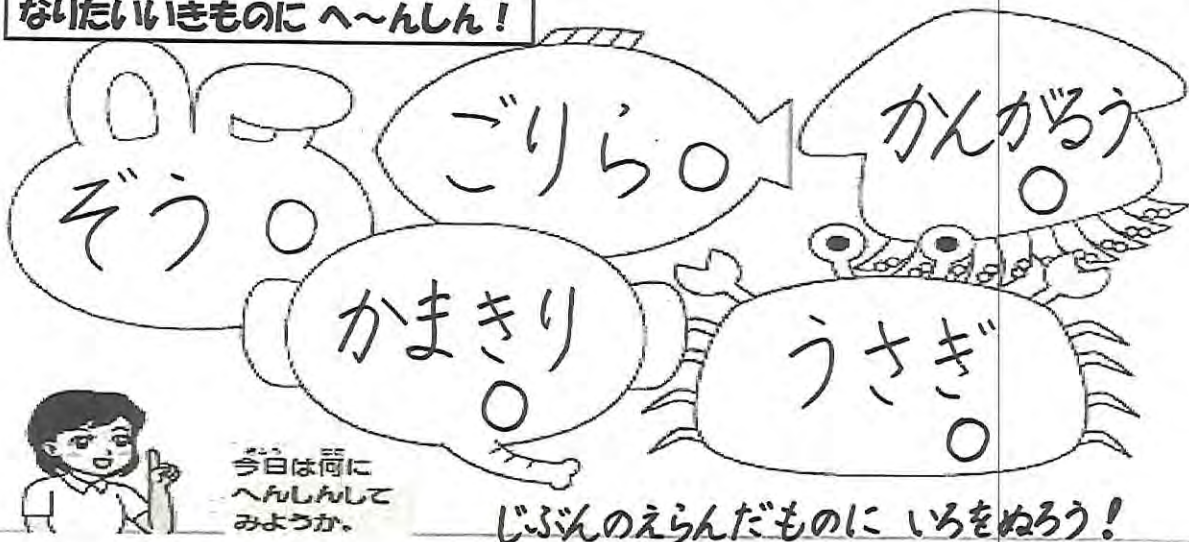 なりたいいきものに へ〜んしん!
ぞう
ごりら
かんがるう
かまきり
うさぎ
今日は何に
へんしんして
みようか。
じぶんのえらんだものに いろをぬろう!